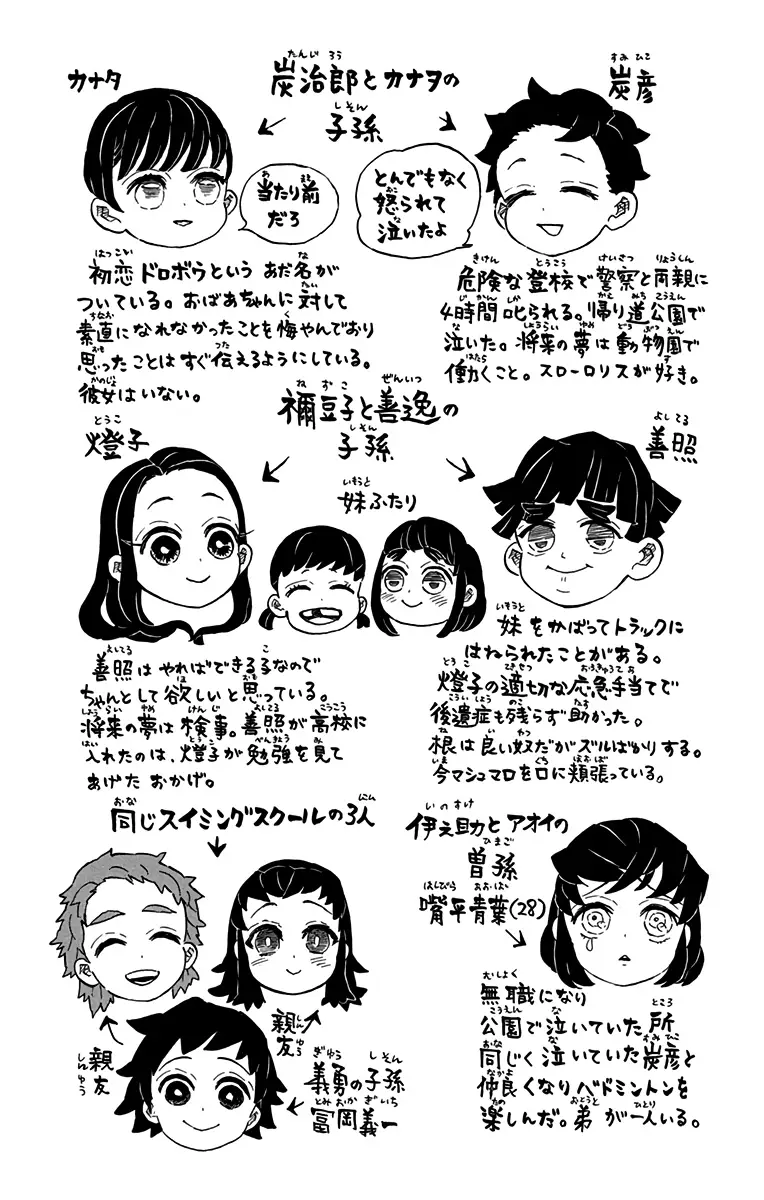 カナタ
炭治郎とカナヲの
子孫
炭彦
当たり前
だろ
とんでもなく
怒られて
泣いたよ
初恋ドロボウという あだ名が
ついている。おばあちゃんに対して
素直になれなかったことも悔やんでおり
思ったことはすぐ伝えるようにしている。
彼女はいない。
危険な登校で警察と両親に
4時間叱られる。帰り道公園で
泣いた。将来の夢は動物園で
働くこと。スローロリスが好き。
禰豆子と善逸の
子孫
燈子
善照
妹ふたり
善照はやればできる子なので
ちゃんとして欲しいと思っている。
将来の夢は検事。善照が高校に
入れたのは、燈子が勉強を見て
あげたおかげ。
妹をかばってトラックに
はねられたことがある。
燈子の適切な応急手当てで
後遺症も残らず助かった。
根は良い奴だがズルばかりする。
今マシュマロを口に頬張っている。
同じスイミングスクールの3人
親友
親友
義勇の子孫
冨岡義一
伊之助とアオイの
曽孫
嘴平青葉(28)
無職になり
公園で泣いていた所
同じく泣いていた炭彦と
仲良くなりベドミントンを
楽しんだ。弟が一人いる。